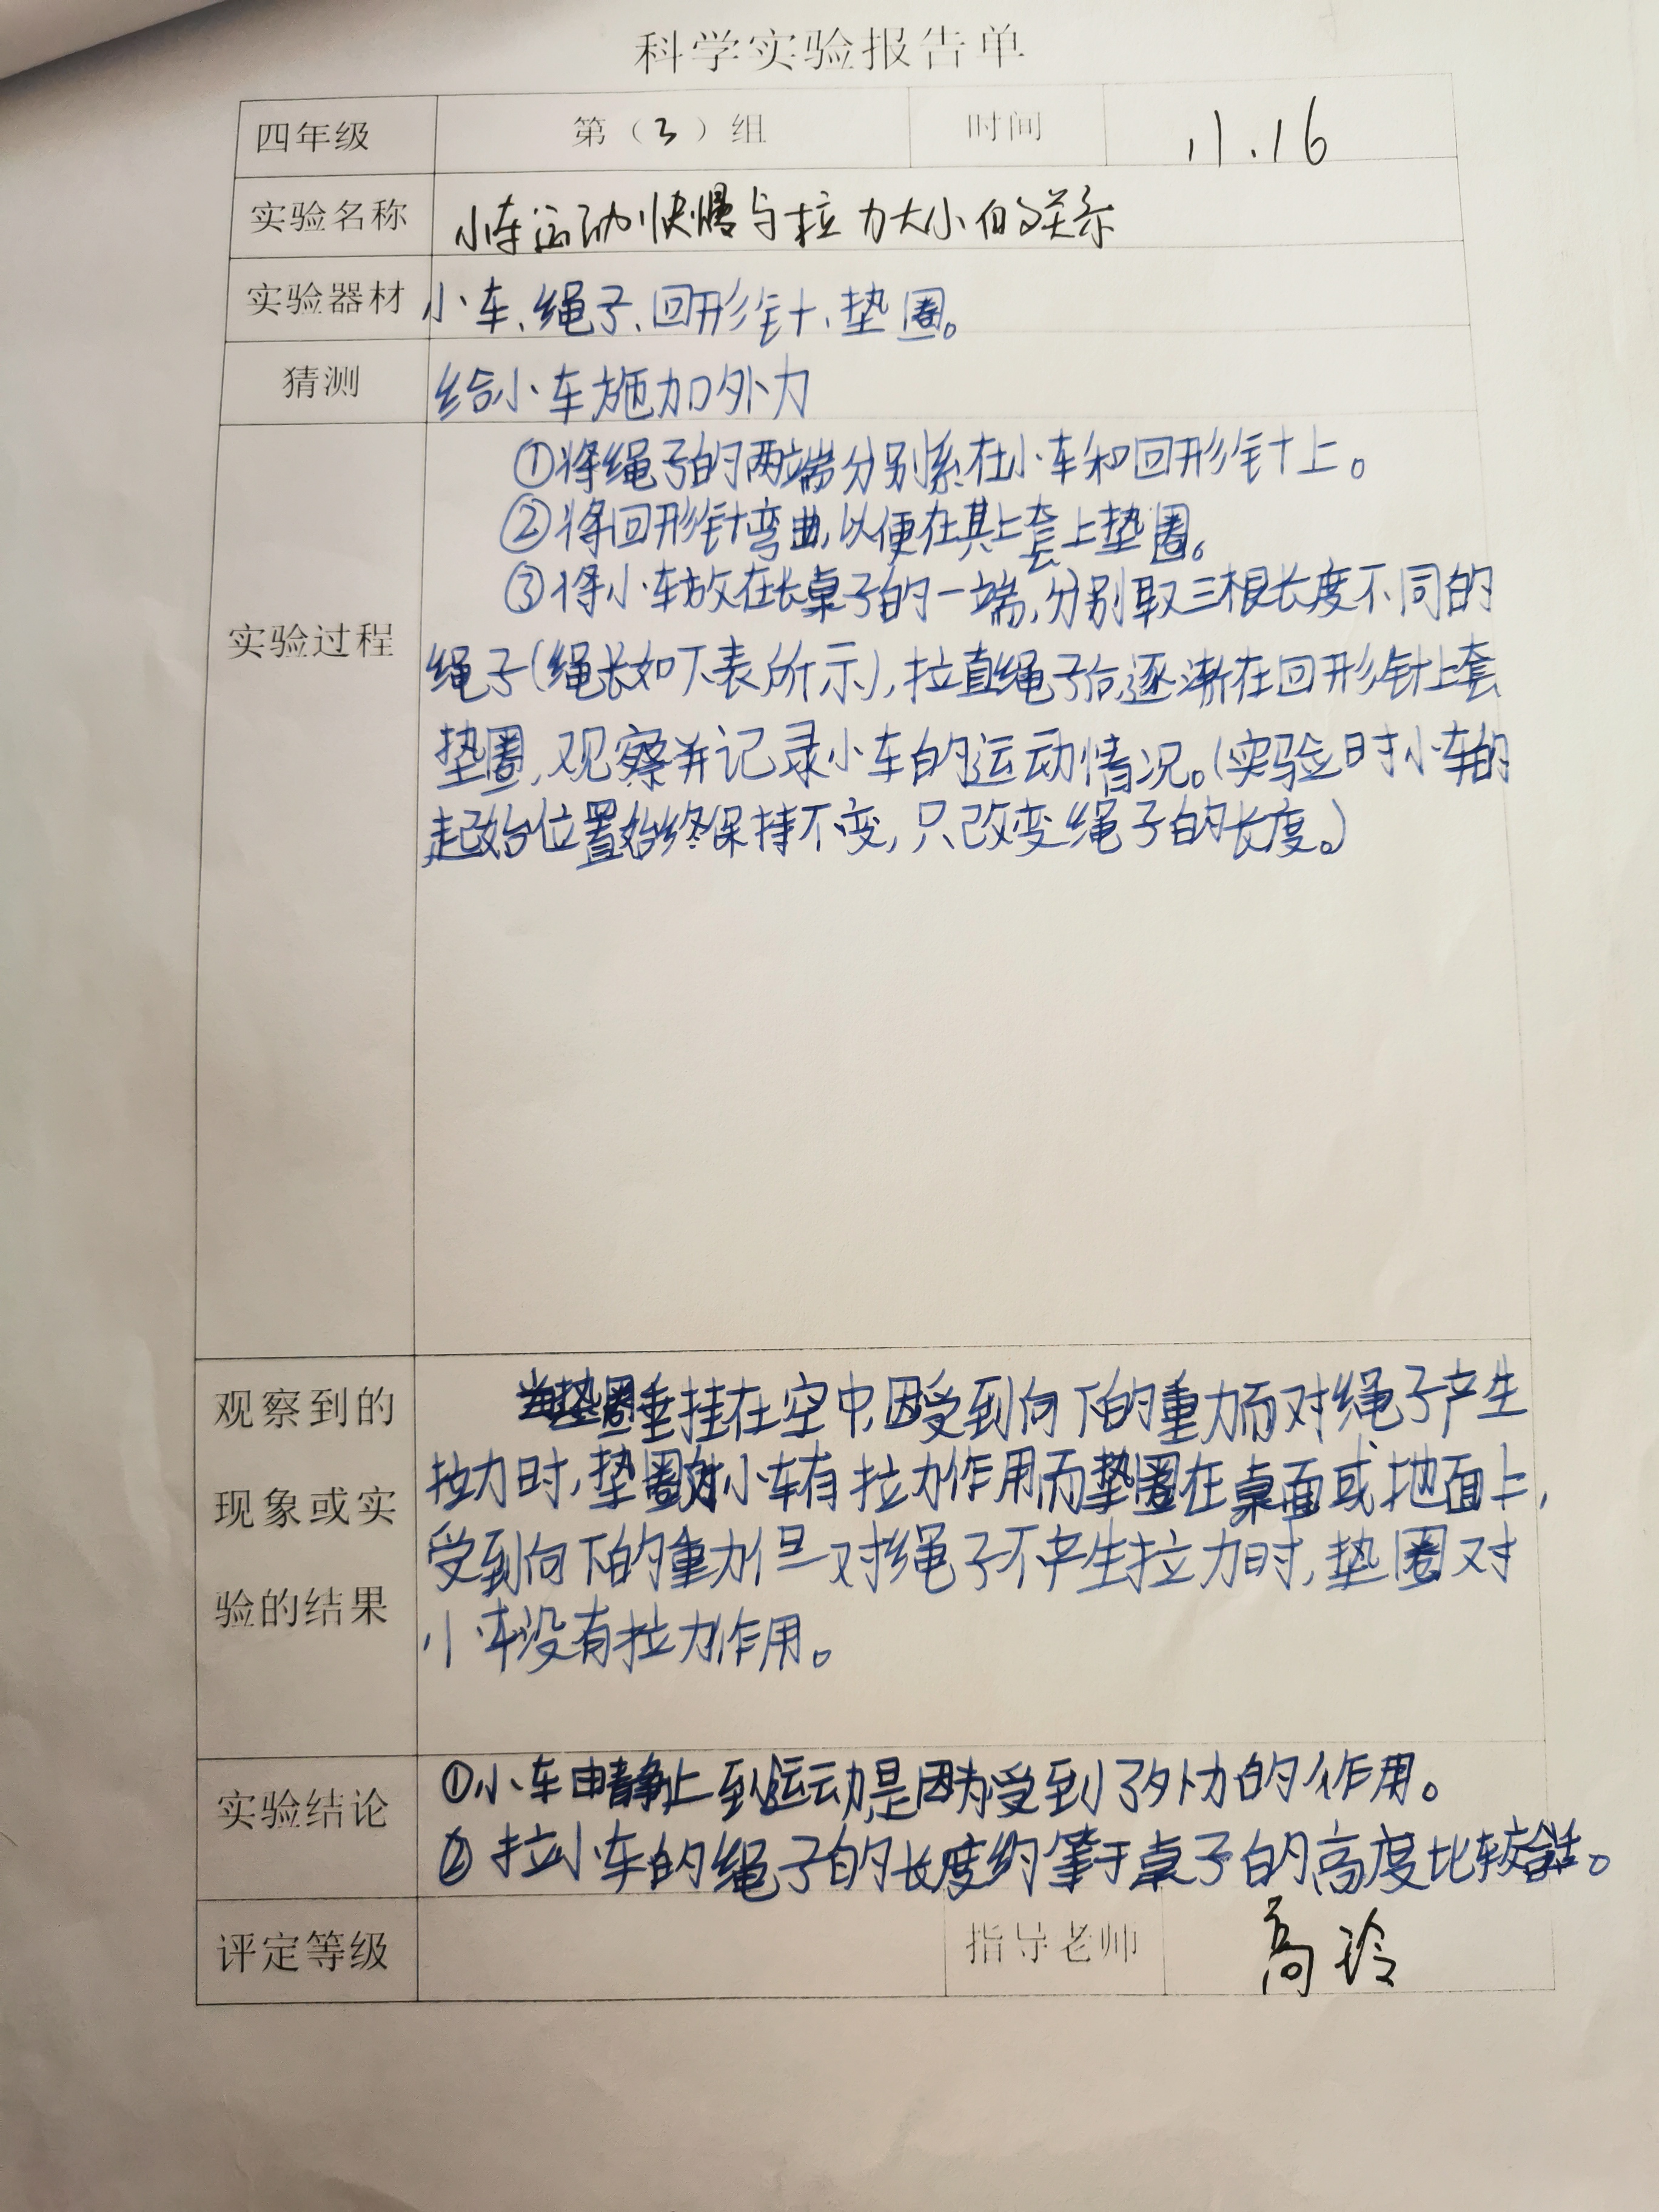 科学实验报告单
四年级 第（3）组 时间 11.16
实验名称 小车运动快慢与拉力大小的关系
实验器材 小车、绳子、回形针、垫圈。
猜测 给小车施加外力
①将绳子的两端分别系在小车和回形针上。
②将回形针弯曲,以便在其上套上垫圈。
③将小车放在长桌子的一端,分别取三根长度不同的
实验过程
绳子(绳长如下表所示),拉直绳子后,逐渐在回形针上套
垫圈,观察并记录小车的运动情况。(实验时小车的
起始位置始终保持不变,只改变绳子的长度。)
观察到的
现象或实
验的结果
当垫圈垂挂在空中,因受到向下的重力而对绳子产生
拉力时,垫圈对小车有拉力作用而垫圈在桌面或地面上,
受到向下的重力但对绳子不产生拉力时,垫圈对
小车没有拉力作用。
实验结论
①小车由静止到运动,是因为受到了外力的作用。
②拉小车的绳子的长度约等于桌子的高度比较合适。
评定等级 指导老师 高玲